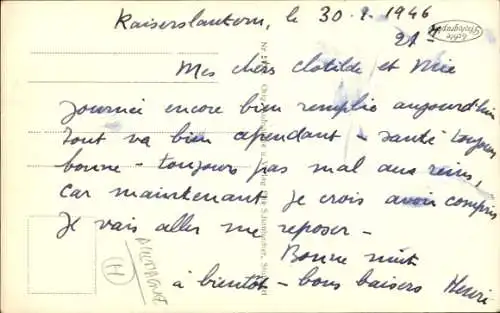 Kaiserslautern, le 30.1.1946
21 H
Mes chers Clotilde et
Journée encore bien remplie aujourd'hui
Tout va bien cependant - santé toujours
bonne - toujours pas mal aux reins,
car maintenant je crois avoir compris
Je vais aller me reposer -
Bonne nuit
à bientôt - bons baisers Henri
ALLEMAGNE
H